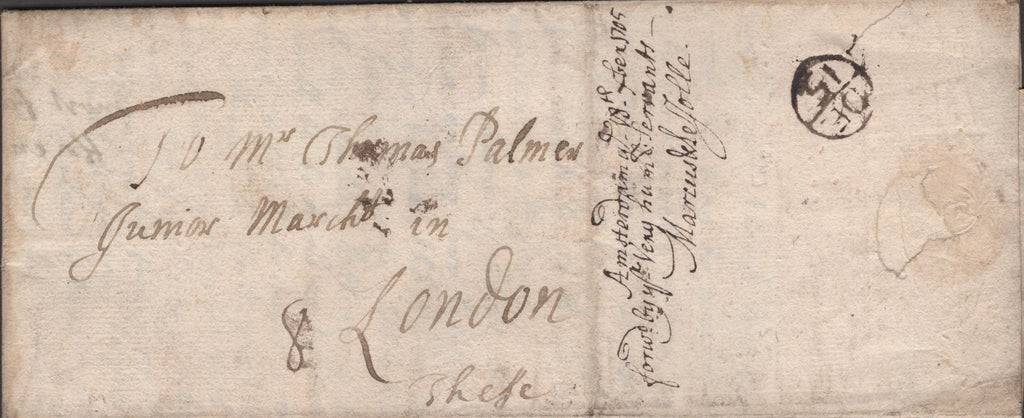 To Mr Thomas Palmer
Junior Marcht in
London
8
These
Amsterdam a 18th xber 1705
forwd by yr Very humb Servants
Marcus & de Jolle.
15
DE